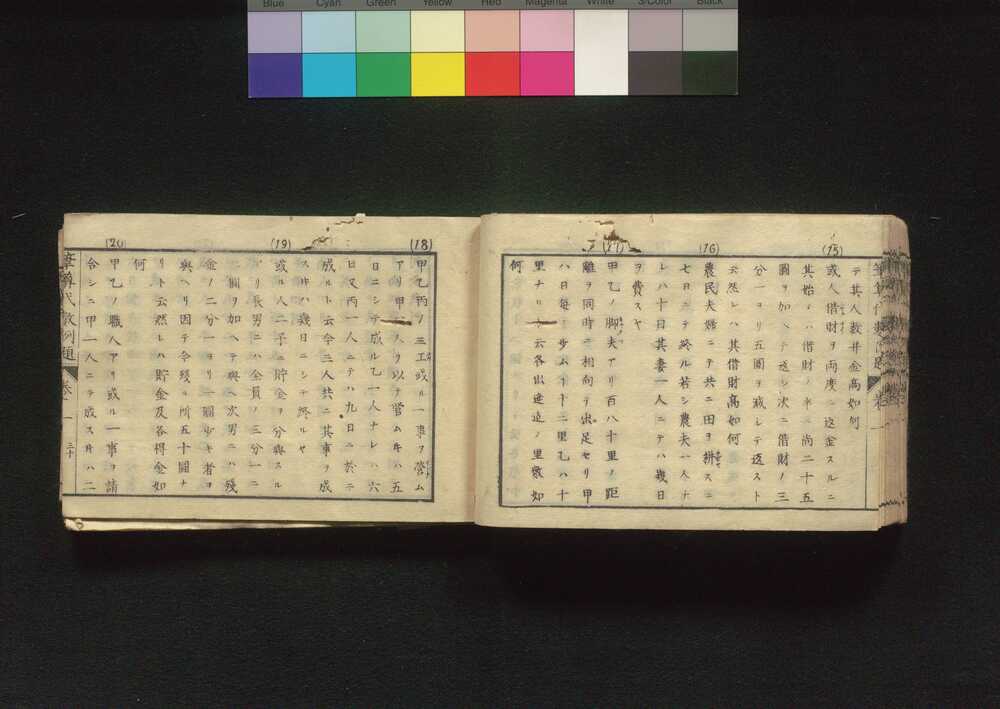 Blue Cyan Green Yellow Red Magenta White 3/Color Black
テ其人數并金高如何
(15)
或人借財ヲ兩度ニ返金スルニ
其始メハ借財ノ半ト尚二十五
圓ヲ加ヘテ返シ次ニ借財ノ三
分一ヨリ五圓ヲ減レテ返スト
云然レハ其借財高如何
(16)
農民夫婦ニテ共ニ田ヲ耕スニ
七日ニテ終ル若シ農夫一人ナ
レハ十日其妻一人ニテハ幾日
ヲ費スヤ
(17)
甲乙ノ脚夫アリ百八十里ノ距
離ヲ同時ニ相向テ出足セリ甲
ハ日毎ニ歩ムヿ十二里乙ハ十
里ナリト云各出逢迄ノ里數如
何
(18)
甲乙丙ノ三工或ル一事ヲ營ム
アリ甲一人ヲ以テ營ム𪜈ハ五
日ニシテ成ル乙一人ナレハ六
日又丙一人ニテハ九日ニ於テ
成ルト云今三人共ニ其事ヲ成
ス𪜈ハ幾日ニシテ終ルヤ
(19)
或ル人二子ニ貯金ヲ分與スル
アリ長男ニハ全員ノ三分一ニ
二圓ヲ加ヘテ與ヘ次男ニハ殘
金ノ二分一ヨリ一圓少キ者ヲ
與ヘリ因テ今殘ル所五十圓ナ
リト云然レハ貯金及各得金如
何
(20)
甲乙ノ職人アリ或ル一事ヲ請
合シニ甲一人ニテ成ス𪜈ハ二
筆算代數例題 卷一 三十